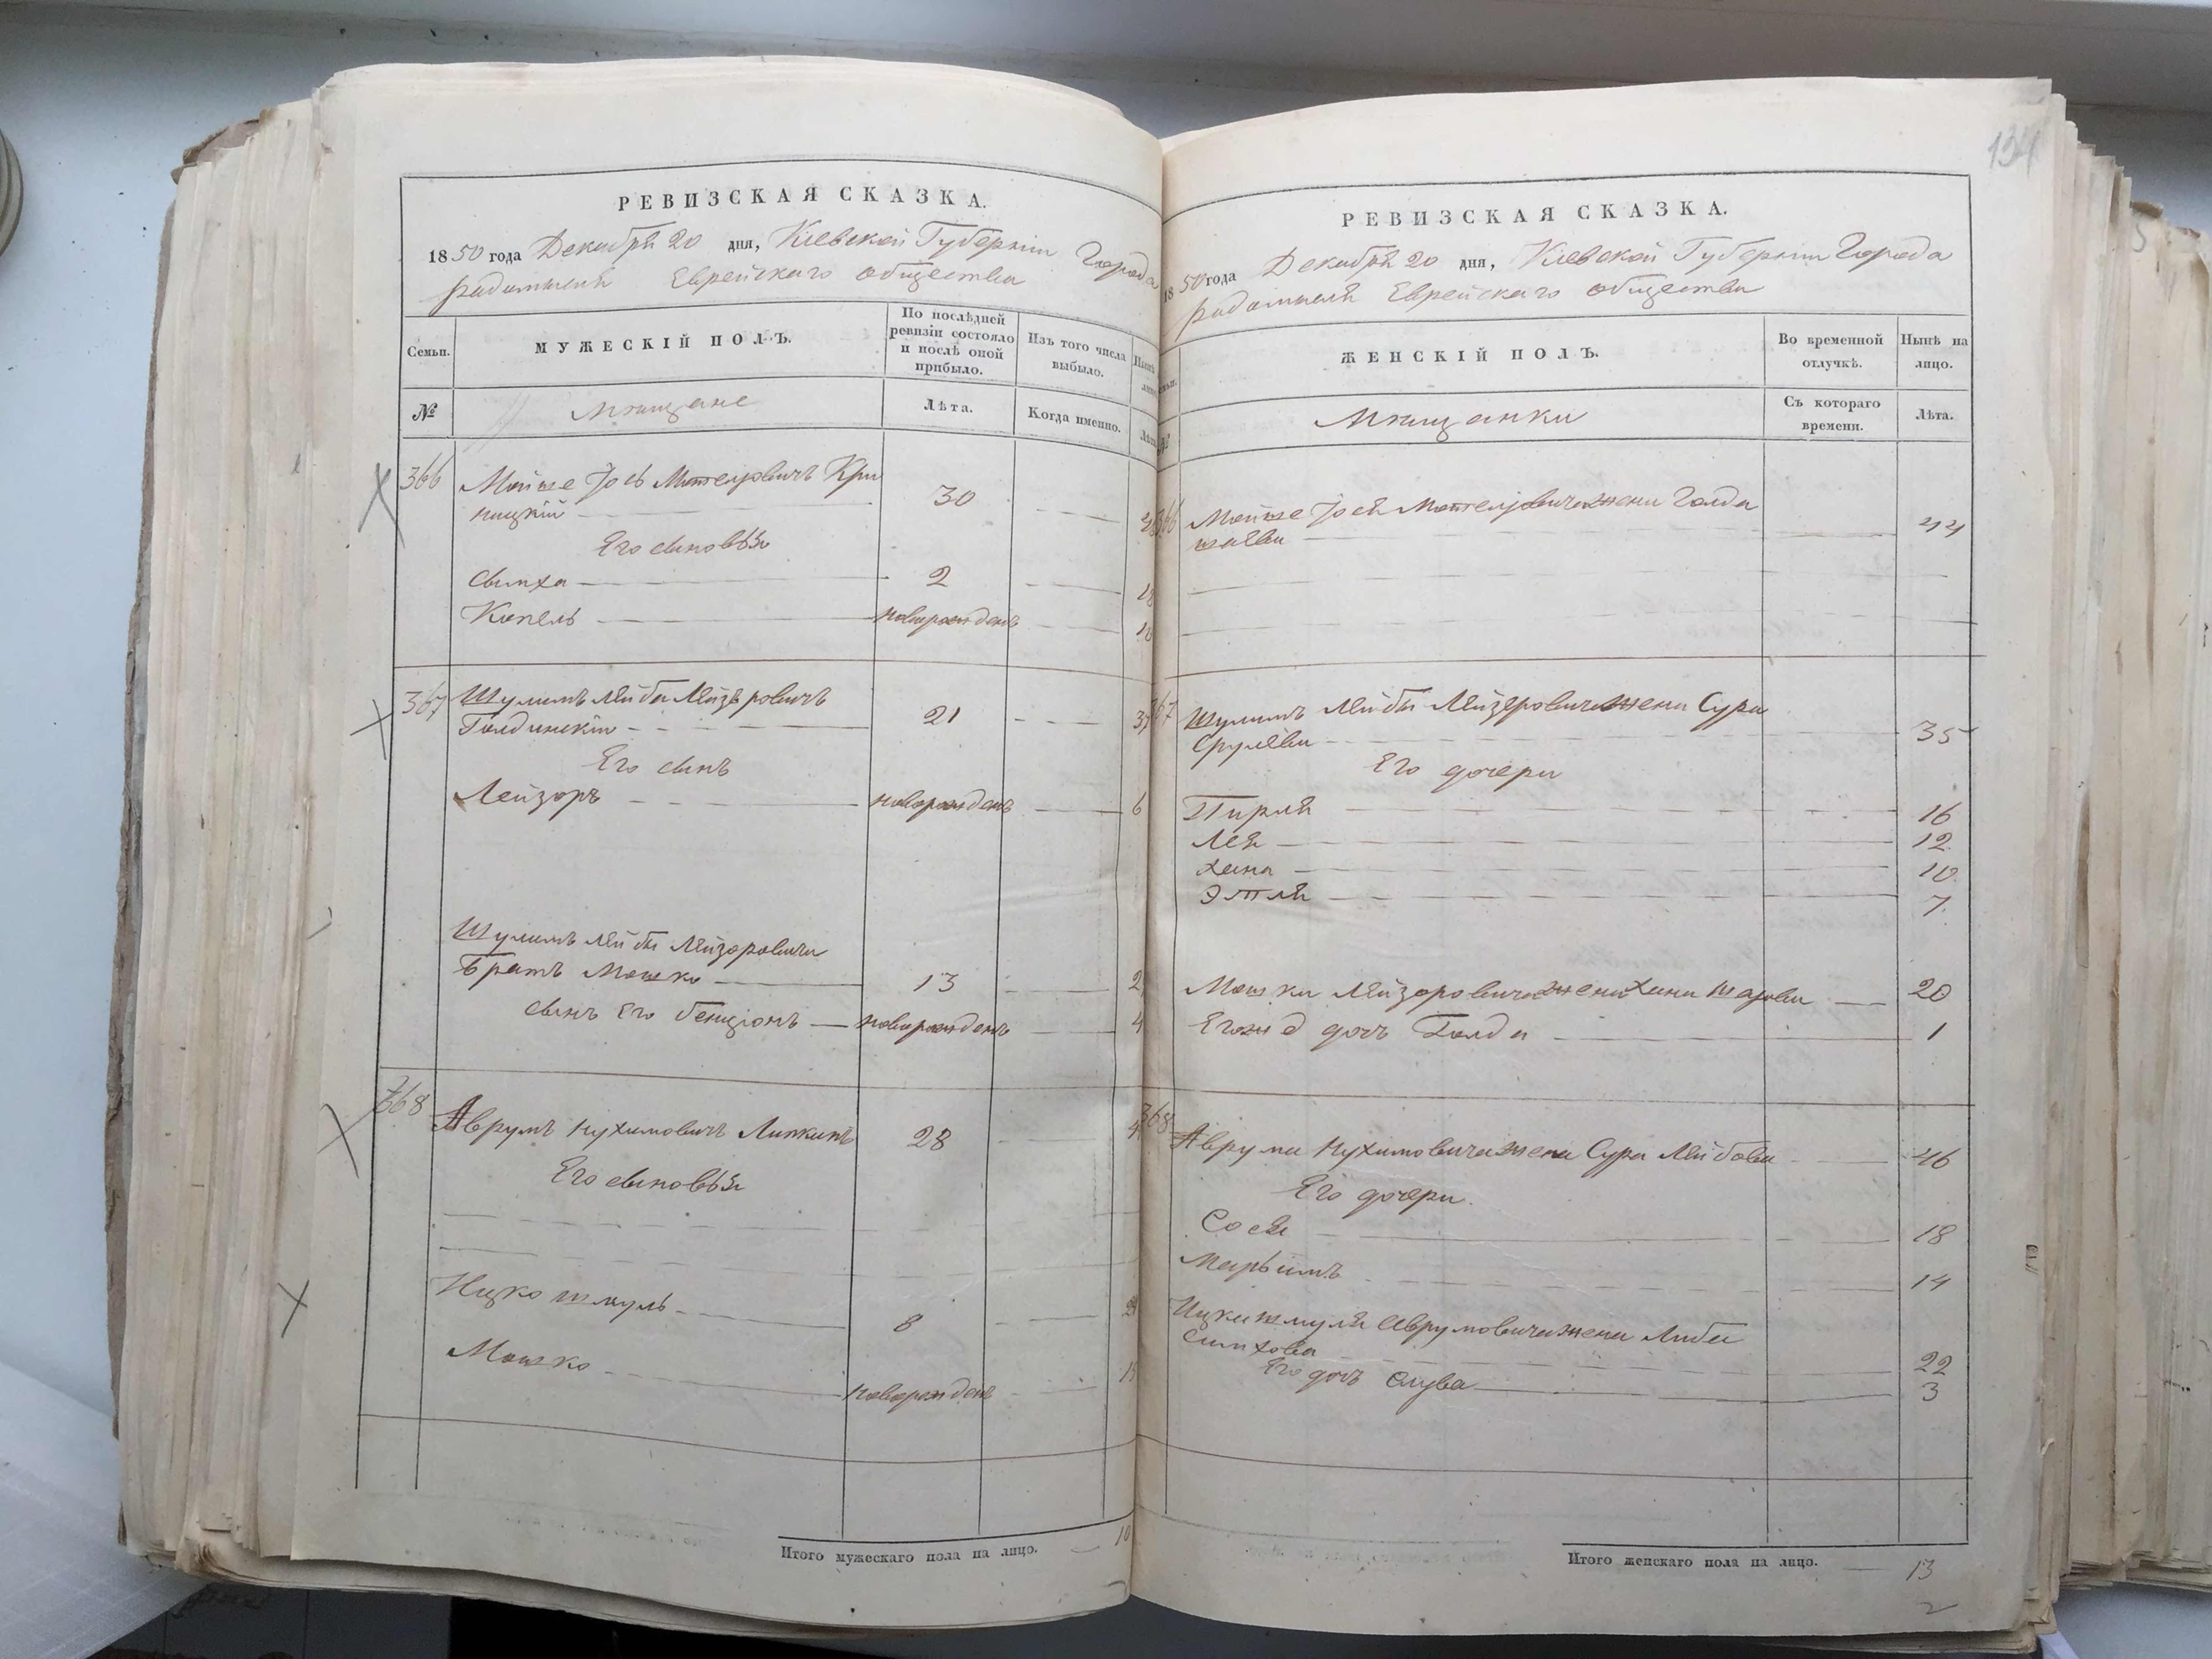 РЕВИЗСКАЯ СКАЗКА.
1850 года Декабря 20 дня, Кіевской Губерніи Города
Радомысля Еврейскаго общества
Семьи.
МУЖЕСКІЙ ПОЛЪ.
По послѣдней ревизіи состояло и послѣ оной прибыло.
Изъ того числа выбыло.
№
Мѣщане
Лѣта.
Когда именно.
366 Мойше Іось Мотелевичъ Кри
ницкій 30
Его сыновья
Симха 2
Копель новорожденъ 10
367 Шулимъ Лейба Лейзеровичъ
Голдинскій 21
Его сынъ
Лейзоръ новорожденъ 6
Шулимъ Лейбы Лейзоровича
Братъ Мошко 13
сынъ Его Бенціонъ новорожденъ 4
368 Аврумъ Нухимовичъ Липкинъ 28
Его сыновья
Ицко Шмуль 8
Мошко новорожденъ
Итого мужескаго пола на лицо. 10
134
РЕВИЗСКАЯ СКАЗКА.
1850 года Декабря 20 дня, Кіевской Губерніи Города
Радомысля Еврейскаго общества
ЖЕНСКІЙ ПОЛЪ.
Во временной отлучкѣ.
Нынѣ на лицо.
Мѣщанки
Съ котораго времени.
Лѣта.
366 Мойше Іося Мотелевича жена Голда
44
367 Шулимъ Лейбы Лейзеровича жена Сура
Срулева 35
Его дочери
Пирля 16
Лея 12
Хана 10
Этля 7
Мошки Лейзоровича жена Хана 20
Егожъ дочь Голда 1
368 Аврума Нухимовича жена Сура Лейбова 46
Его дочери
Сося 18
Марьимъ 14
Ицки Шмуля Аврумовича жена Либа
Симхова 22
Его дочь 3
Итого женскаго пола на лицо. 13